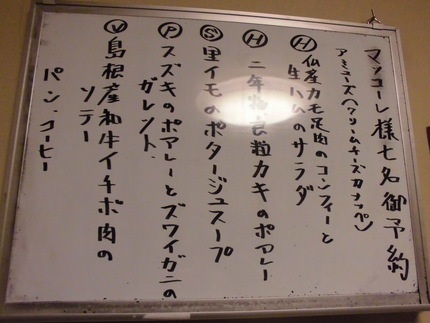 マッコーレ様七名御予約
アミューズ(クリームチーズカナッペ)
Ⓗ 仏産カモ足肉のコンフィーと
生ハムのサラダ
Ⓗ 二年物 粒カキのポアレー
Ⓢ 里イモのポタージュスープ
Ⓟ スズキのポアレーとズワイガニの
ガレット.
Ⓥ 島根産和牛イチボ肉の
ソテー
パン.コーヒー